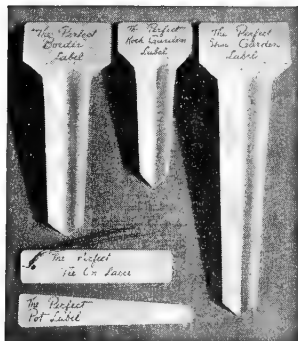 The Perfect
Border
Label
The Perfect
Rock Garden
Label
The Perfect
Garden
Label
The Perfect
Tie On
The Perfect
Pot Label